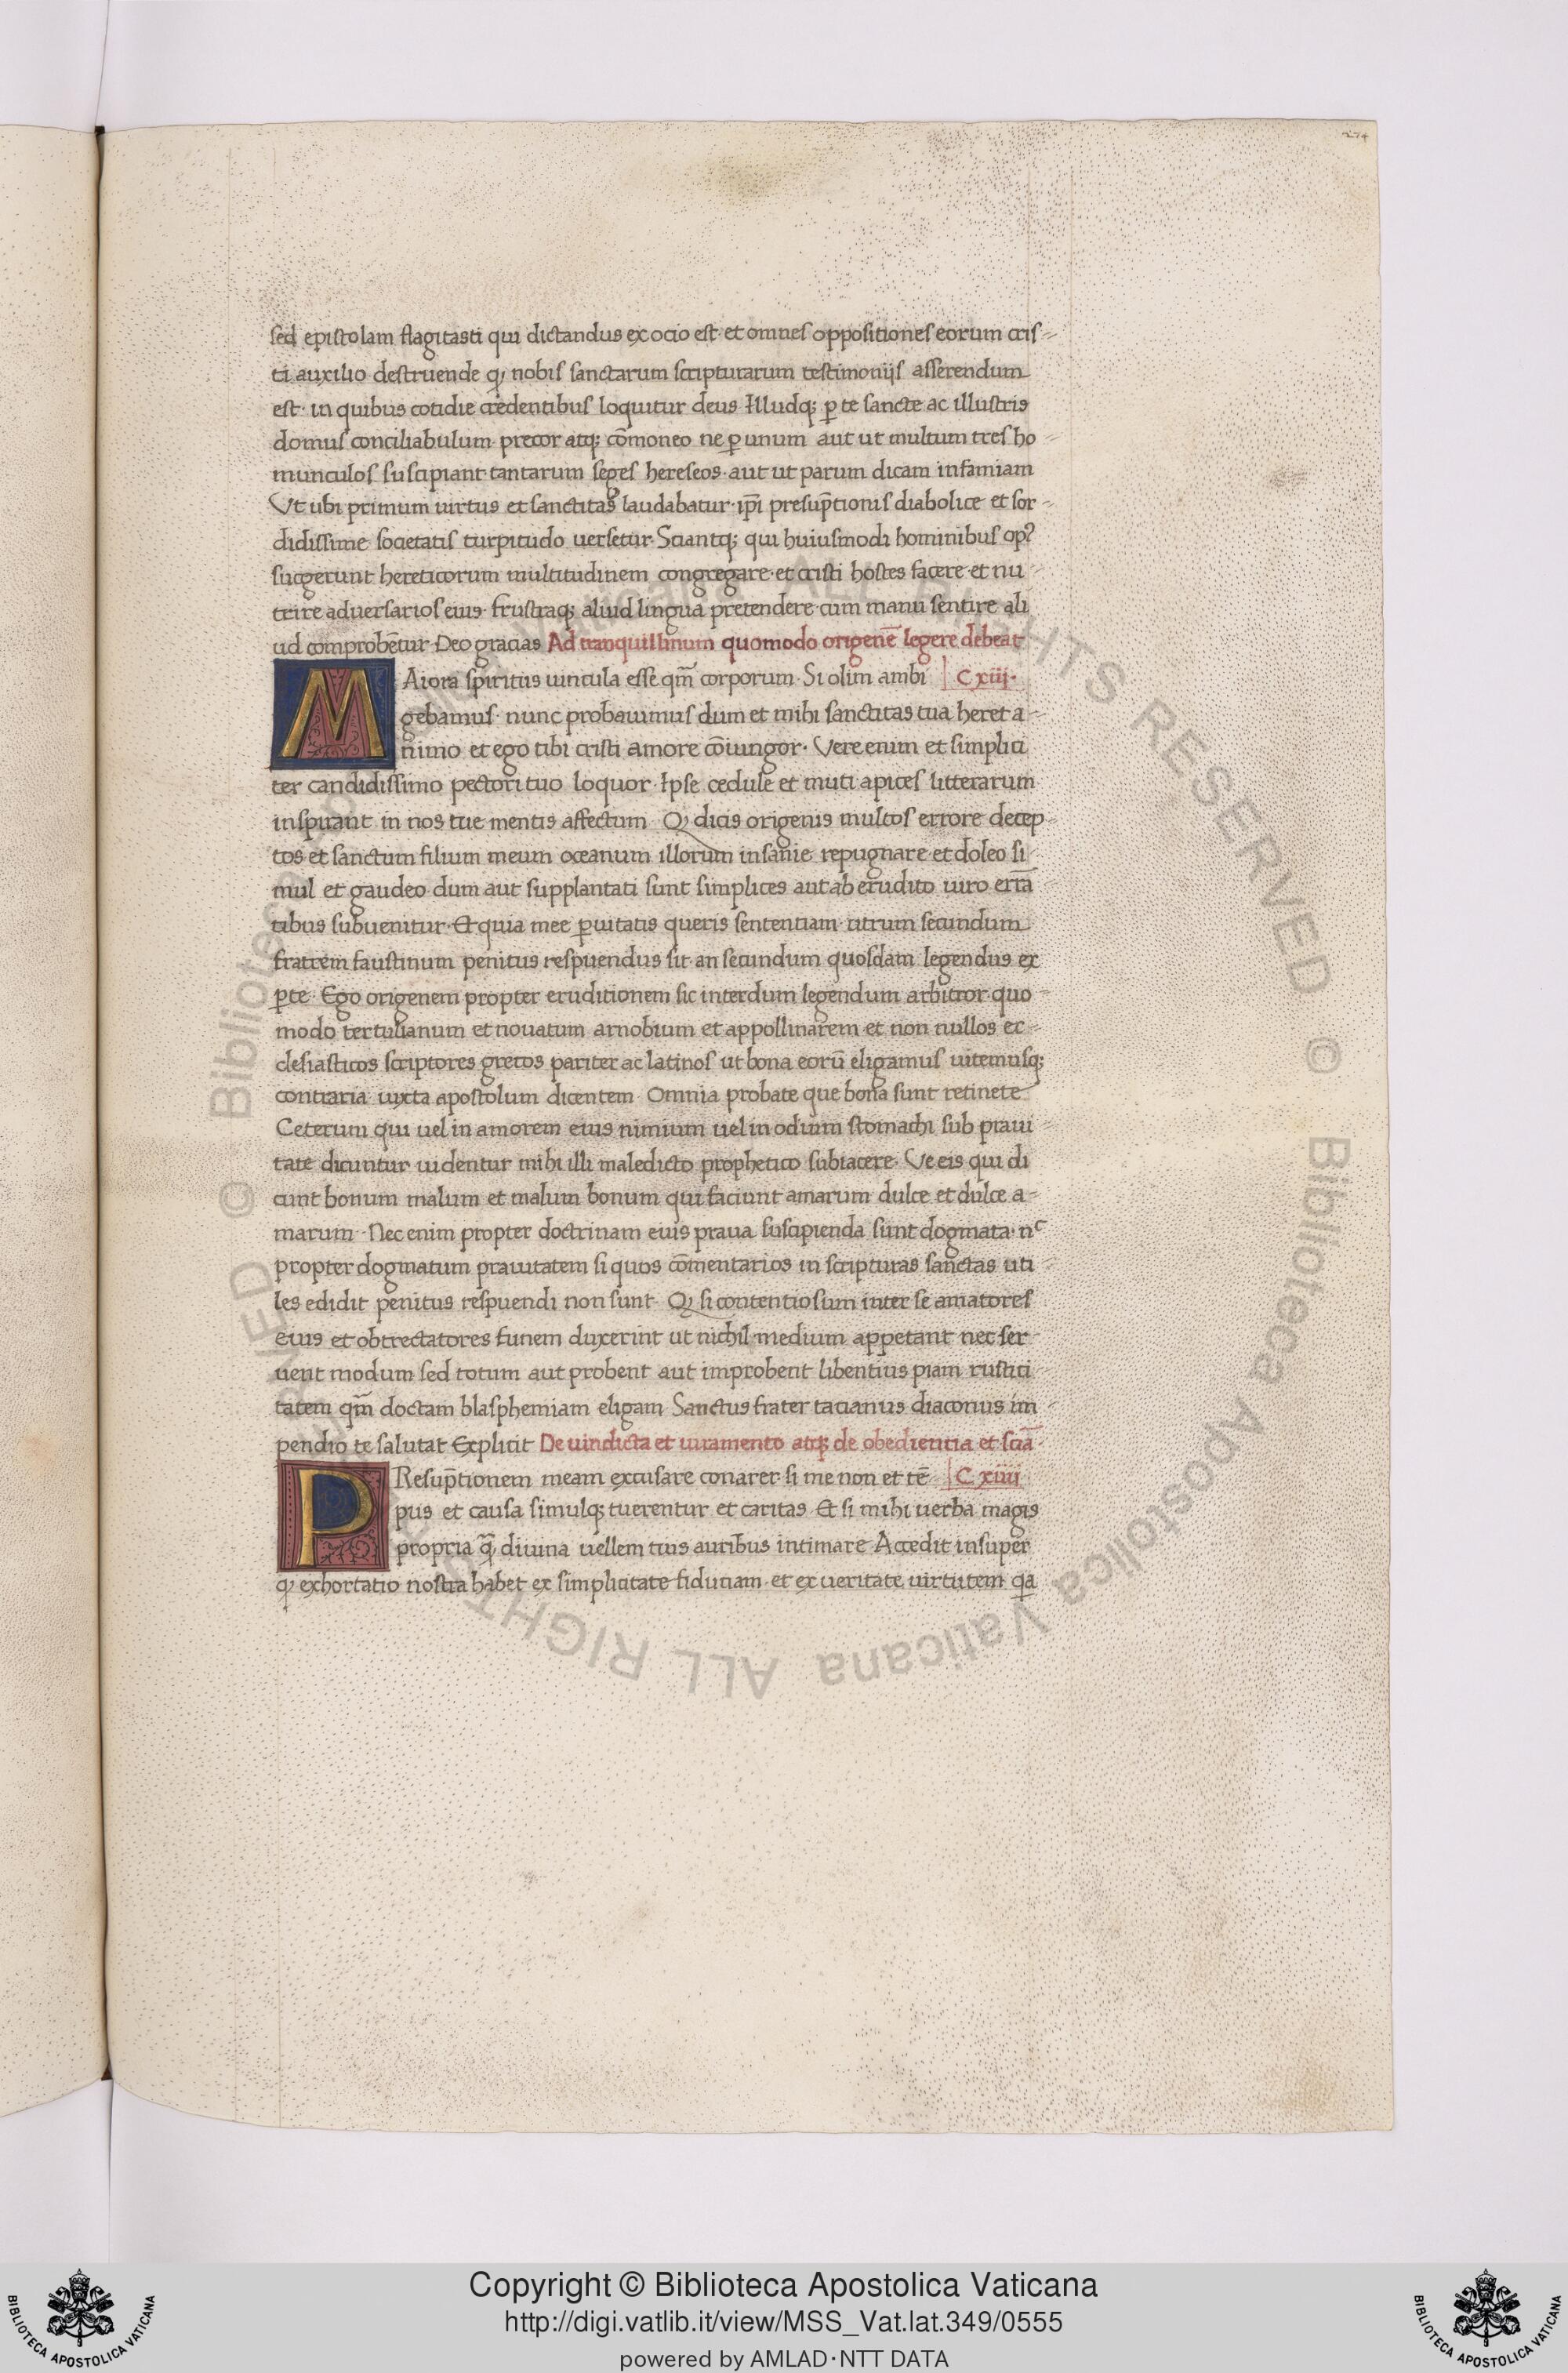 274
sed epistolam flagitasti qui dictandus ex ocio est· et omnes oppositiones eorum cris-
ti auxilio destruende qꝫ nobis sanctarum scripturarum testimonijs asserendum
est· in quibus cotidie credentibus loquitur deus· Illudqꝫ ꝑ te sancte ac illustris
domus conciliabulum precor atqꝫ com̄oneo ne ꝑ unum aut ut multum tres ho-
munculos suscipiant tantarum seges hereseos· aut ut parum dicam infamiam
Ut ubi primum uirtus et sanctitas laudabatur· ip̄i presup̄tionis diabolice et sor-
didissime societatis turpitudo uersetur· Sciantqꝫ qui huiusmodi hominibus op̉
suggerunt hereticorum multitudinem congregare· et cristi hostes facere· et nu-
trire aduersarios eius· frustraqꝫ aliud lingua pretendere· cum manu sentire ali
ud comprobēt̄ur· Deo gracias Ad tranquillinum quomodo origenē legere debeat
MAiora spiritus uincula esse qm̄ corporum· Si olim ambi C xiij·
gebamus· nunc probauimus dum et mihi sanctitas tua heret a-
nimo et ego tibi cristi amore cōiungor· Vere enim et simplici
ter candidissimo pectori tuo loquor· Ipse cedule et muti apices litterarum
inspirant in nos tue mentis affectum Qꝫ dicis origenis multos errore decep-
tos et sanctum filium meum oceanum illorum insanie repugnare· et doleo si-
mul et gaudeo dum aut supplantati sunt simplices aut ab erudito uiro errā-
tibus subuenitur· Et quia mee ꝑuitatis queris sententiam· utrum secundum
fratrem faustinum penitus respuendus sit· an secundum quosdam legendus ex
ꝑte· Ego origenem propter eruditionem sic interdum legendum arbitror· quo-
modo tertulianum et nouatum arnobium et appollinarem et non nullos ec-
clesiasticos scriptores grecos pariter ac latinos ut bona eorū eligamus uitemusqꝫ
contraria iuxta apostolum dicentem Omnia probate que bona sunt retinete
Ceterum qui uel in amorem eius nimium uel in odium stomachi sub praui-
tate dicuntur uidentur mihi illi maledicto prophetico subiacere· Ve eis qui di
cunt bonum malum et malum bonum qui faciunt amarum dulce et dulce a-
marum· Nec enim propter doctrinam eius praua suscipienda sunt dogmata· nᶜ
propter dogmatum prauitatem si quos cōmentarios in scripturas sanctas uti-
les edidit penitus respuendi non sunt· Qꝫ si contentiosum inter se amatores
eius et obtrectatores funem duxerint ut nichil medium appetant nec ser-
uent modum sed totum aut probent aut improbent libentius piam rustici-
tatem qm̄ doctam blasphemiam eligam Sanctus frater tacianus diaconus im-
pendio te salutat Explicit De uindicta et iuramento atqꝫ de obedientia et sciā·
PResup̄tionem meam excusare conarer si me non et tē- C xiiij
pus et causa simulqꝫ tuerentur et caritas Et si mihi uerba magis
propria q̄ꝫ diuina uellem tuis auribus intimare Accedit insuper
qꝫ exhortatio nostra habet ex simplicitate fiduciam· et ex ueritate uirtutem qa
Copyright © Biblioteca Apostolica Vaticana
http://digi.vatlib.it/view/MSS_Vat.lat.349/0555
powered by AMLAD·NTT DATA
BIBLIOTECA APOSTOLICA VATICANA
BIBLIOTECA APOSTOLICA VATICANA